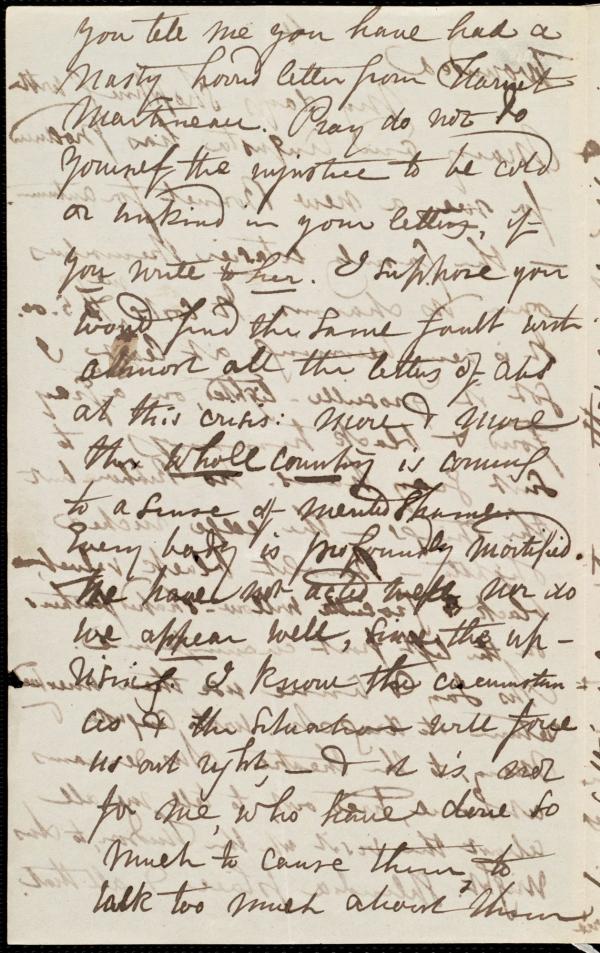 you tell me you have had a
nasty horrid letter from Harriet
Martineau. Pray do not do
yourself the injustice to be cold
or unkind in your letters, if
you write to her. I suppose you
would find the same fault with
almost all the letters of abs
at this crisis: more & more
the whole country is coming
to a sense of merited shame.
Every body is profoundly mortified.
We have not acted well, nor do
we appear well, since the up-
rising. I know the circumstan-
ces & the situation will force
us out right, — & it is not
for me, who have done so
much to cause them, to
talk too much about them